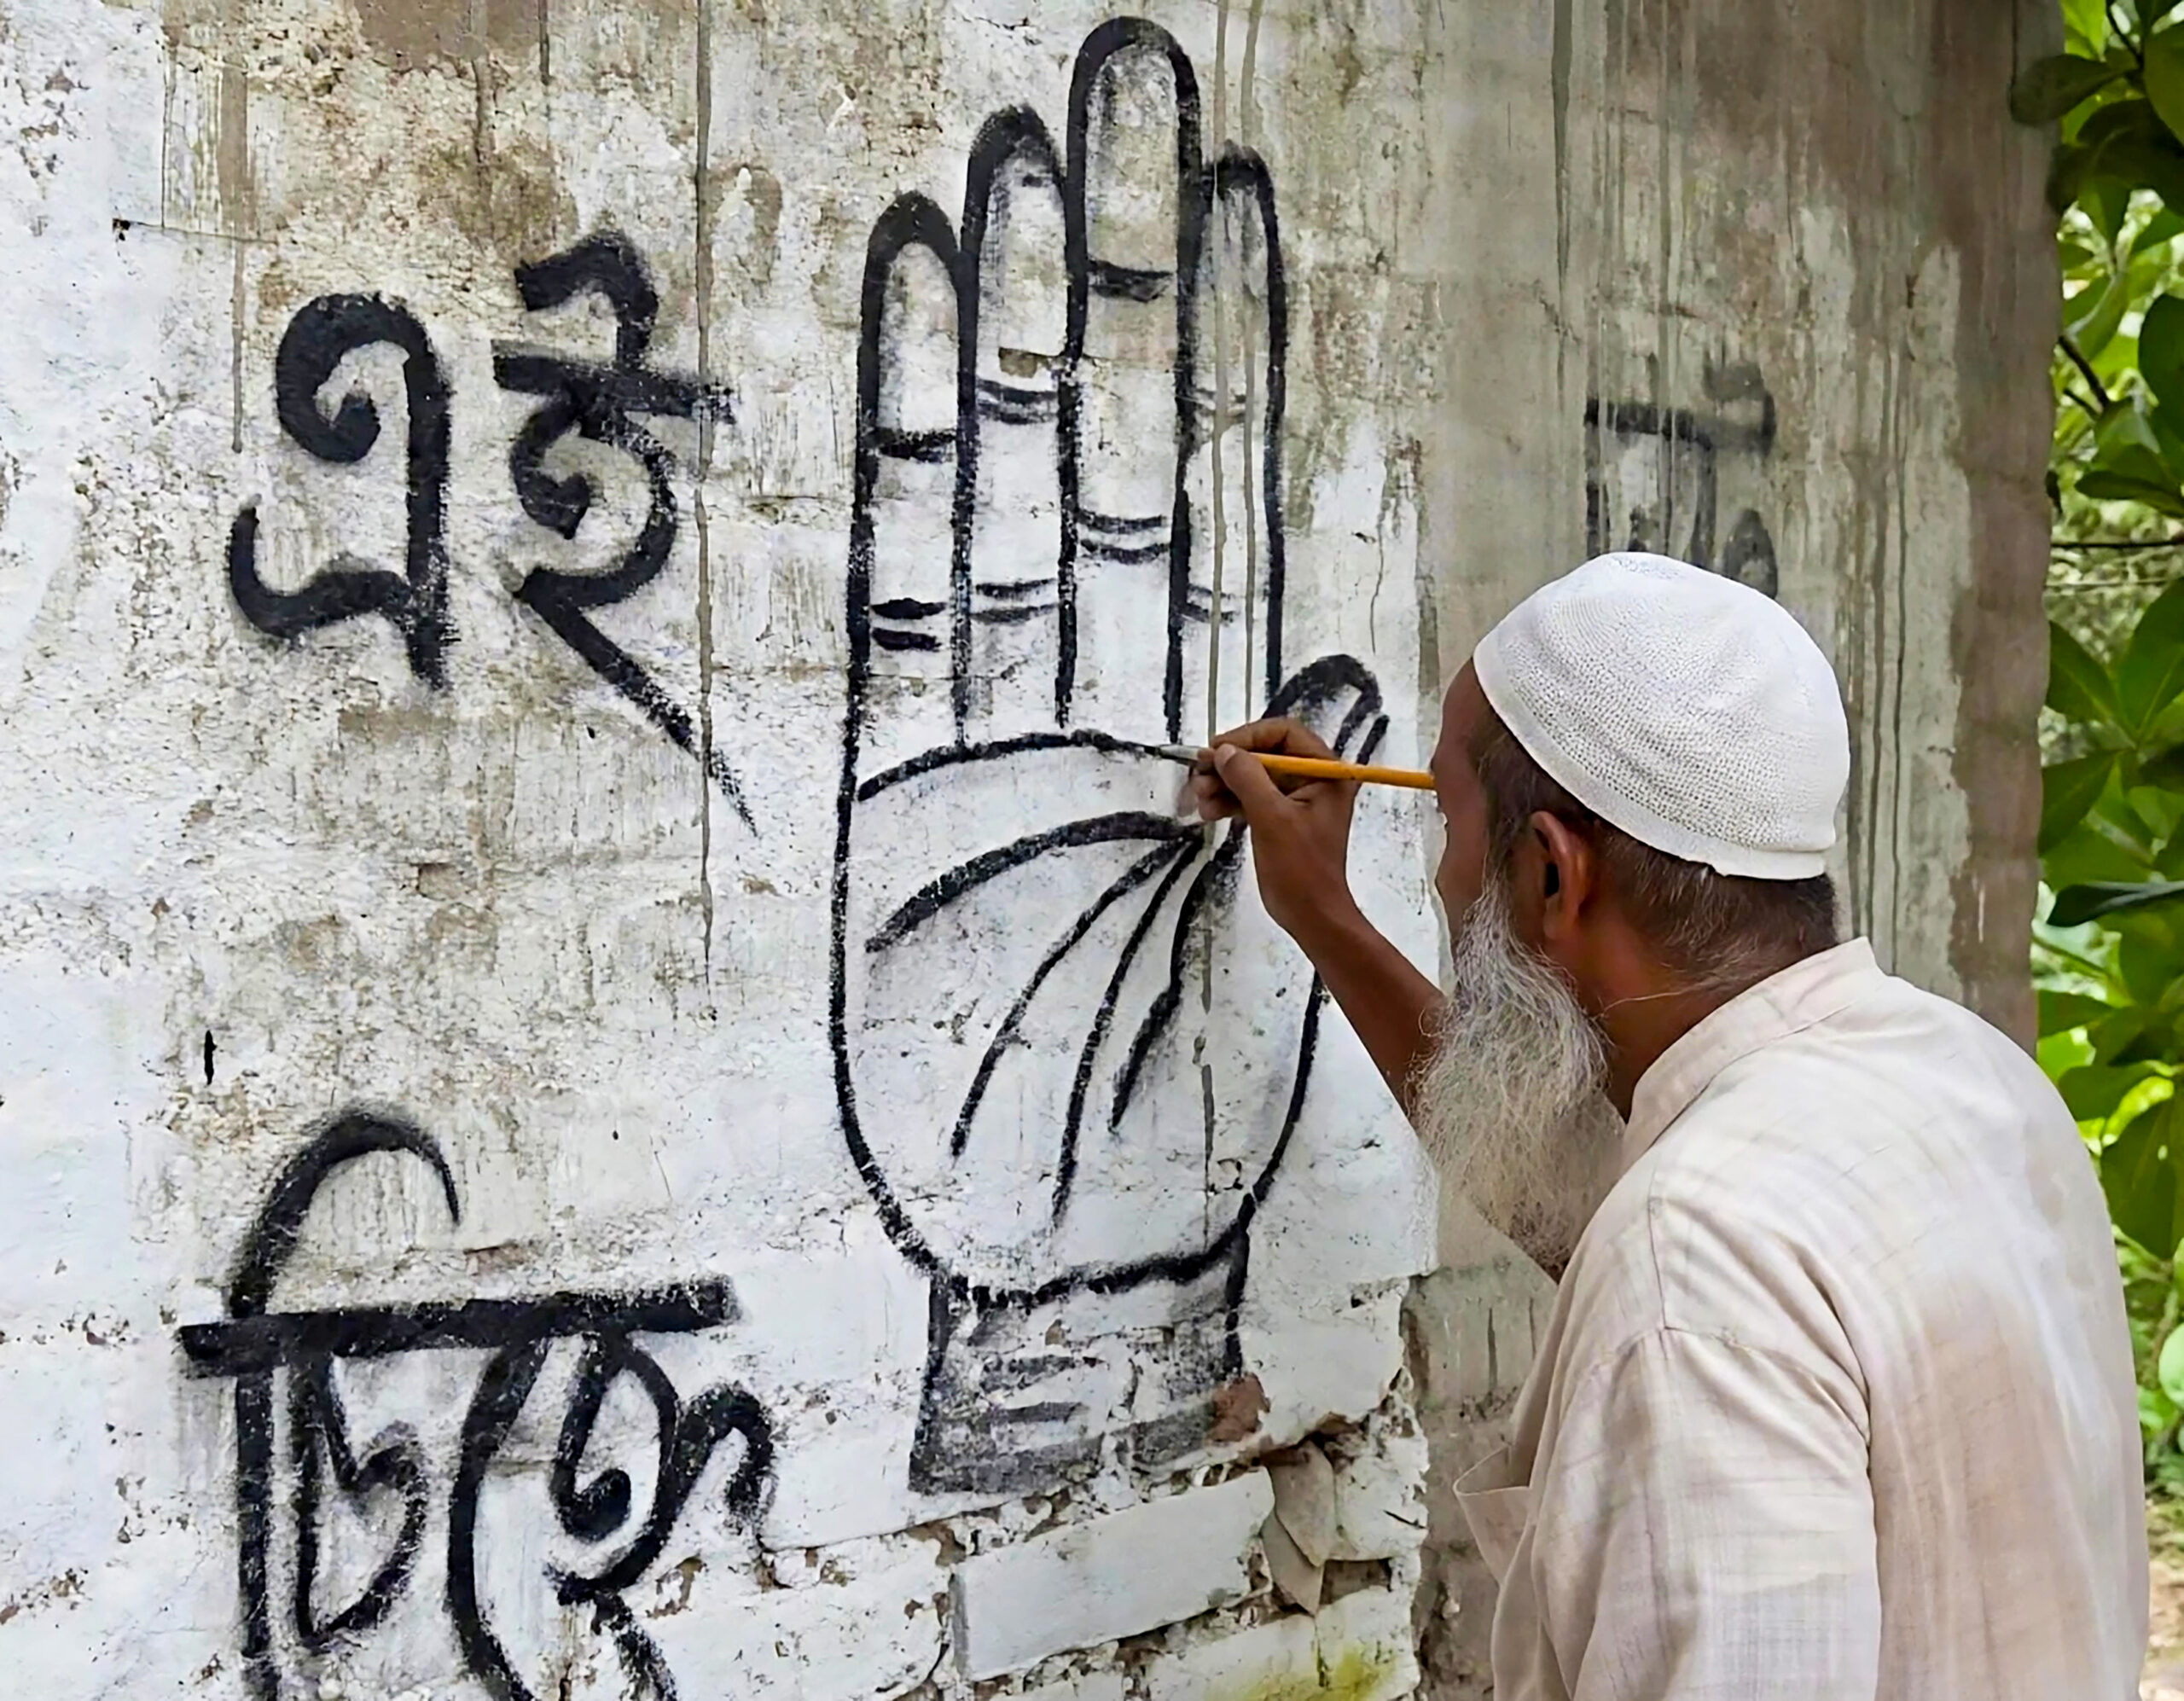 এই
চিহ্নে